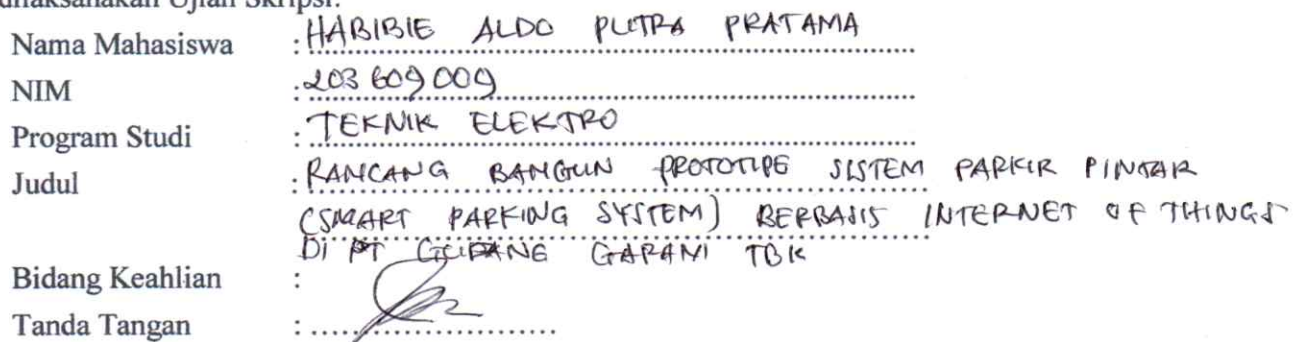 dilaksanakan Ujian Skripsi.
Nama Mahasiswa : HABIBIE ALDO PUTRA PRATAMA
NIM : 203609009
Program Studi : TEKNIK ELEKTRO
Judul : RANCANG BANGUN PROTOTIPE SISTEM PARKIR PINTAR
(SMART PARKING SYSTEM) BERBASIS INTERNET OF THINGS
DI PT GUDANG GARAM TBK
Bidang Keahlian :
Tanda Tangan :